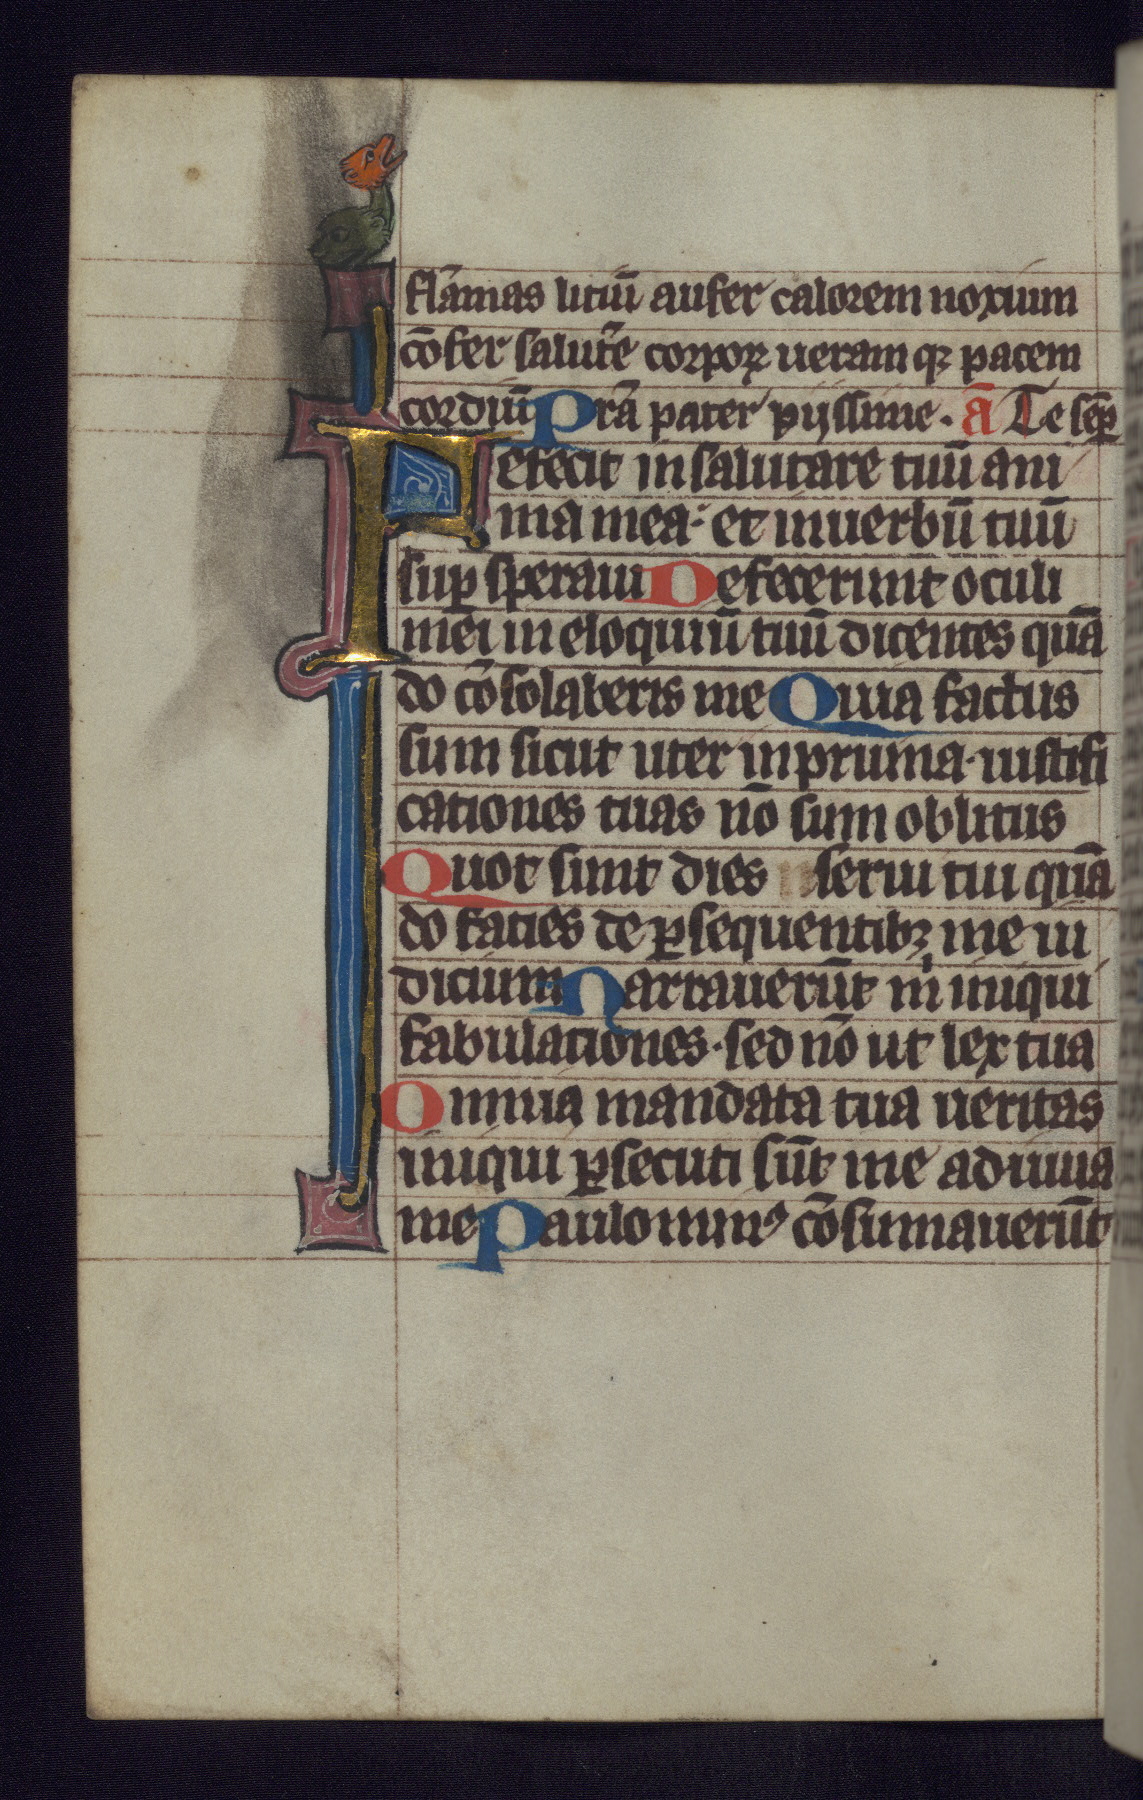 flāmas litiū aufer calorem noxium
cōfer salutē corpoꝝ ueram qꝫ pacem
cordiū Prā pater pijssime . ā Te sēp
Fefecit in salutare tuū ani
ma mea: et in uerbū tuū
suꝑ speraui Defecerunt oculi
mei in eloquiū tuū dicentes quā
do cōsolaberis me Quia factus
sum sicut uter in pruina· iustifi
cationes tuas nō sum oblitus
Quot sunt dies serui tui quā
do facies de ꝑsequentibꝫ me iu
dicium Narrauerūt m̄ iniqui
fabulationes · sed nō ut lex tua
Omnia mandata tua ueritas
iniqui ꝑsecuti sūt me adiuua
me Paulominꝰ cōsumauerūt